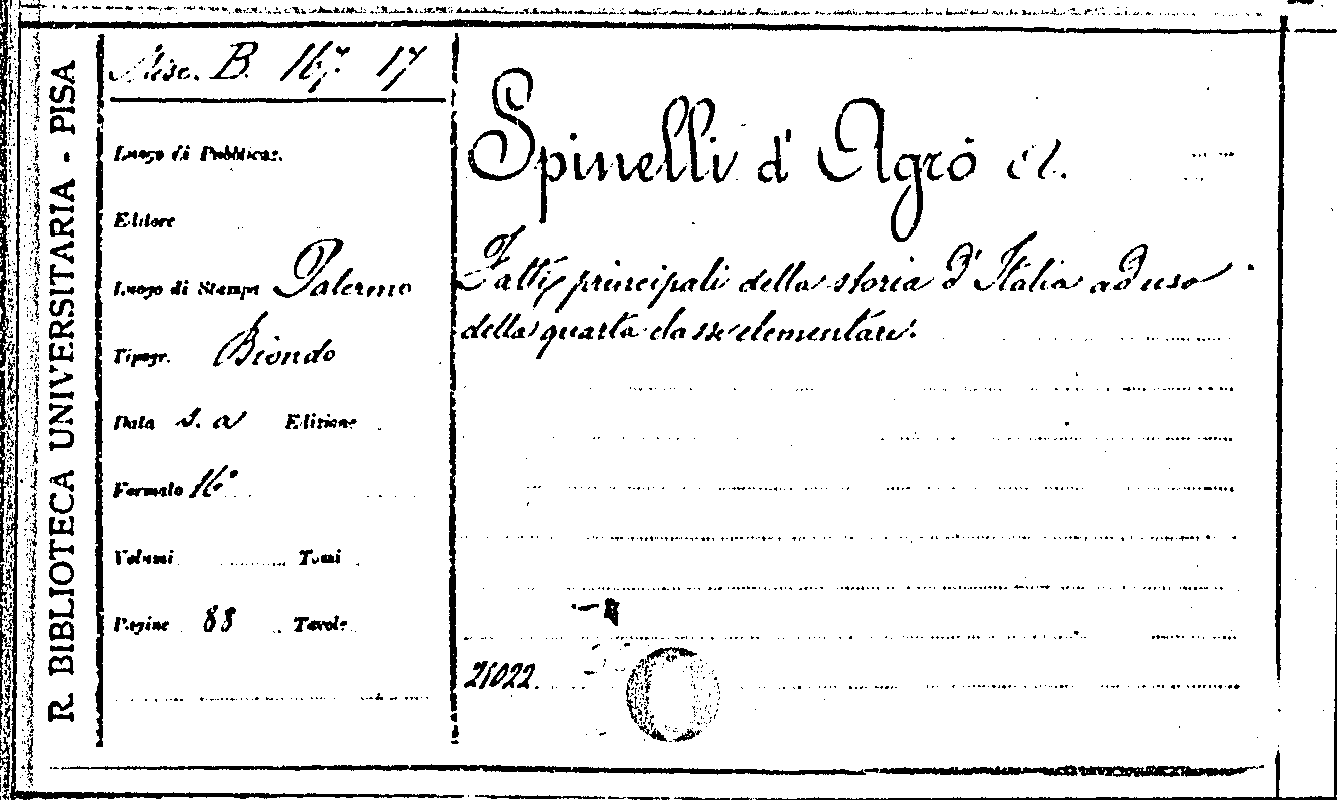 R. BIBLIOTECA UNIVERSITARIA - PISA
Misc. B. 167. 17
Luogo di Pubblicaz.
Editore
Luogo di Stampa Palermo
Tipogr. Biondo
Data s. a Edizione
Formato 16°
Volumi Tomi
Pagine 88 Tavole
Spinelli d' Agrò
Fatti principali della storia d' Italia ad uso
della quarta classe elementare.
21022